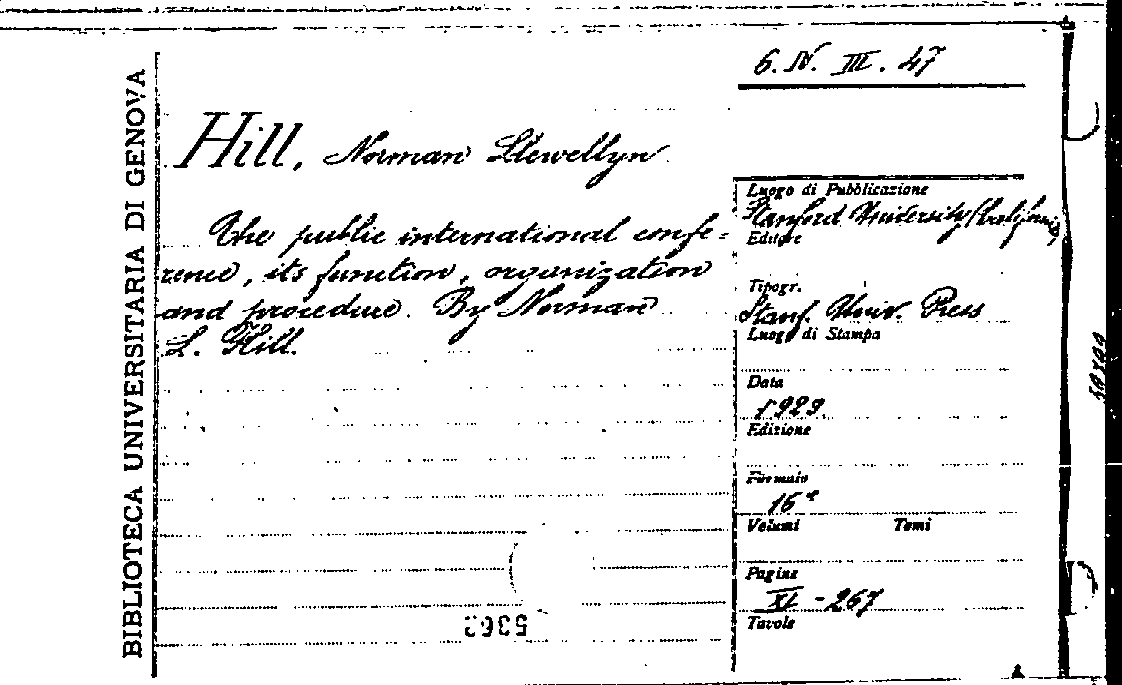 BIBLIOTECA UNIVERSITARIA DI GENOVA
6. IV. III. 47
Hill, Norman Llewellyn
The public international confe=
rence, its function, organization
and procedure. By Norman
L. Hill.
Luogo di Pubblicazione
Stanford University (California)
Editore
Tipogr.
Stanf. Univ. Press
Luogo di Stampa
Data
1929.
Edizione
Formato
16°
Volumi Tomi
Pagine
XI - 267
Tavole